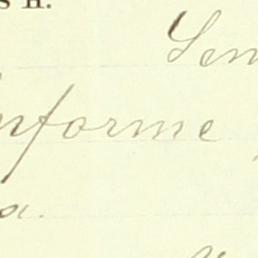 s n.
Sen
informe
a.